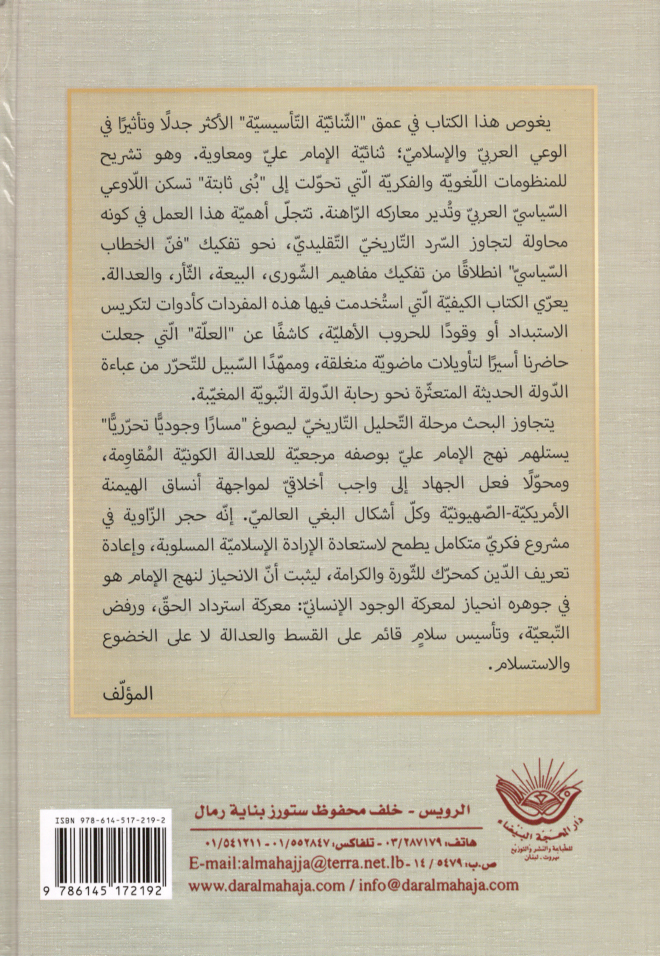 يغوص هذا الكتاب في عمق "الثّنائيّة التّأسيسيّة" الأكثر جدلًا وتأثيرًا في
الوعي العربيّ والإسلاميّ؛ ثنائيّة الإمام عليّ ومعاوية. وهو تشريح
للمنظومات اللّغوية والفكريّة الّتي تحوّلت إلى "بُنى ثابتة" تسكن اللّاوعي
السّياسيّ العربيّ وتُدير معاركه الرّاهنة. تتجلّى أهميّة هذا العمل في كونه
محاولة لتجاوز السّرد التّاريخيّ التّقليديّ، نحو تفكيك "فنّ الخطاب
السّياسيّ" انطلاقًا من تفكيك مفاهيم الشّورى، البيعة، الثّأر، والعدالة.
يعرّي الكتاب الكيفيّة الّتي استُخدمت فيها هذه المفردات كأدوات لتكريس
الاستبداد أو وقودًا للحروب الأهليّة، كاشفًا عن "العلّة" الّتي جعلت
حاضرنا أسيرًا لتأويلات ماضويّة منغلقة، وممهّدًا السّبيل للتّحرّر من عباءة
الدّولة الحديثة المتعثّرة نحو رحابة الدّولة النّبويّة المغيّبة.
يتجاوز البحث مرحلة التّحليل التّاريخيّ ليصوغ "مسارًا وجوديًّا تحرّريًّا"
يستلهم نهج الإمام عليّ بوصفه مرجعيّة للعدالة الكونيّة المُقاوِمة،
ومحوّلًا فعل الجهاد إلى واجب أخلاقيّ لمواجهة أنساق الهيمنة
الأمريكيّة-الصّهيونيّة وكلّ أشكال البغي العالميّ. إنّه حجر الزّاوية في
مشروع فكريّ متكامل يطمح لاستعادة الإرادة الإسلاميّة المسلوبة، وإعادة
تعريف الدّين كمحرّك للثّورة والكرامة، ليثبت أنّ الانحياز لنهج الإمام هو
في جوهره انحياز لمعركة الوجود الإنسانيّ: معركة استرداد الحقّ، ورفض
التّبعيّة، وتأسيس سلامٍ قائم على القسط والعدالة لا على الخضوع
والاستسلام.
المؤلّف
الرويس - خلف محفوظ ستورز بناية رمال
هاتف: ٠٣/٢٨٧١٧٩ - تلفاكس: ٠١/٥٥٢٨٤٧ - ٠١/٥٤١٢١١
ص.ب: ١٤/٥٤٧٩ - E-mail:almahajja@terra.net.lb
www.daralmahaja.com / info@daralmahaja.com
دار المحجّة البيضاء
للطباعة والنشر والتوزيع
بيروت - لبنان
ISBN 978-614-517-219-2
9 786145 172192